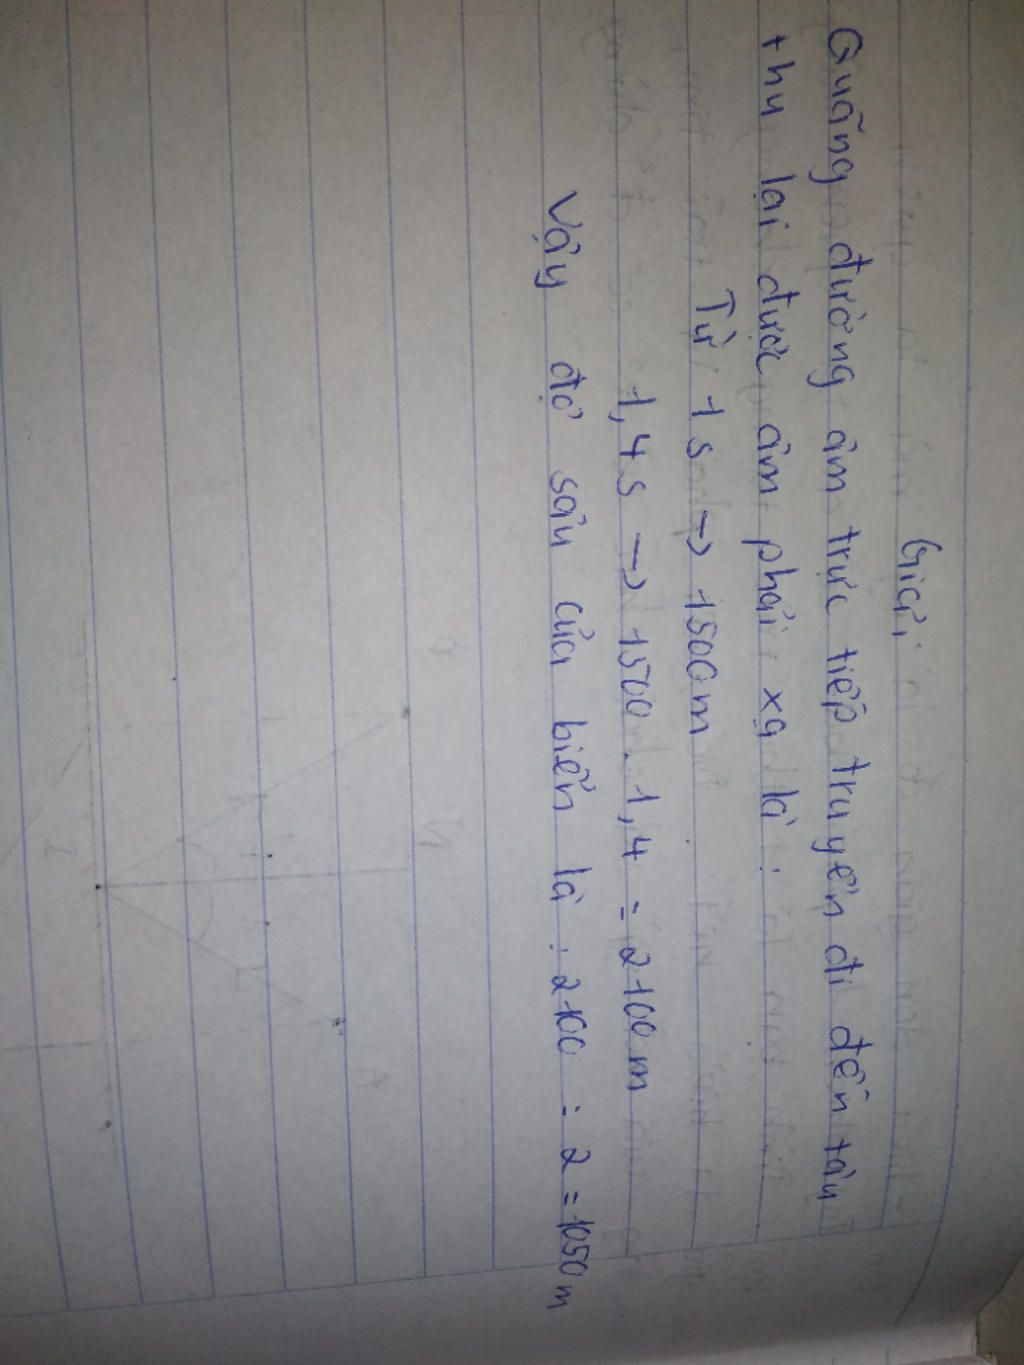 Giải
Quãng đường âm trực tiếp truyền đi đến tàu
thu lại được âm phải xạ là :
Từ 1 s → 1500 m
1,4 s → 1500 . 1,4 = 2100 m
Vậy độ sâu của biển là : 2100 : 2 = 1050 m